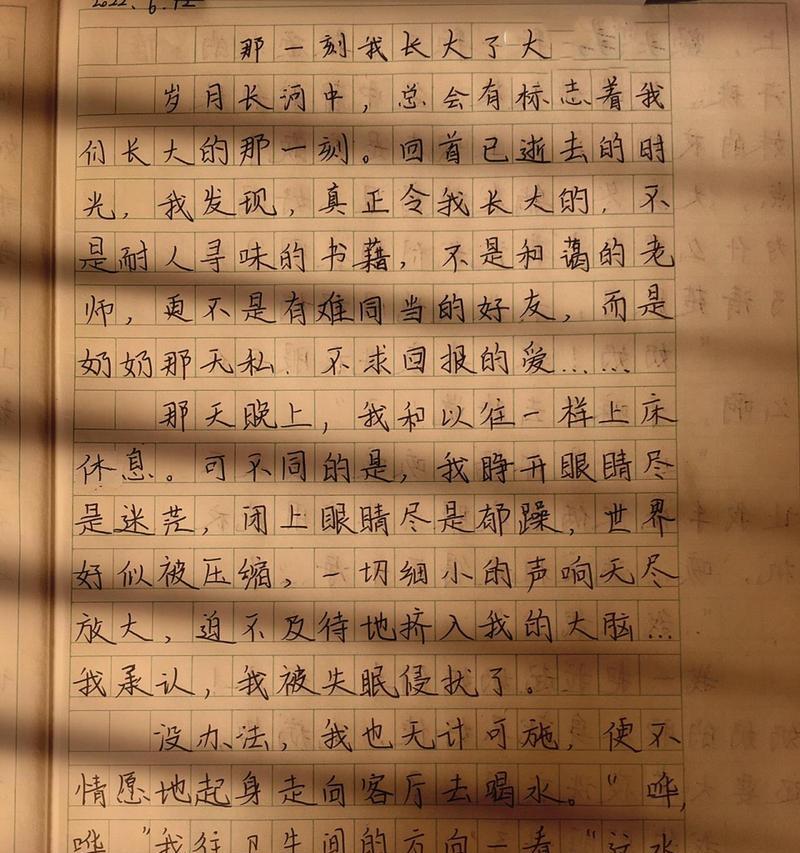 2022.6.12
那一刻我长大了大
岁月长河中，总会有标志着我
们长大的那一刻。回首已逝去的时
光，我发现，真正令我长大的，不
是耐人寻味的书籍，不是和蔼的老
师，更不是有难同当的好友，而是
奶奶那无私、不求回报的爱……
那天晚上，我和以往一样上床
休息。可不同的是，我睁开眼睛尽
是迷茫，闭上眼睛尽是郁躁，世界
好似被压缩，一切细小的声响无尽
放大，迫不及待地挤入我的大脑…
我承认，我被失眠侵扰了。
没办法，我也无计可施，便不
情愿地起身走向客厅去喝水。“哗，
哗”我往卫生间的方向一看“这水